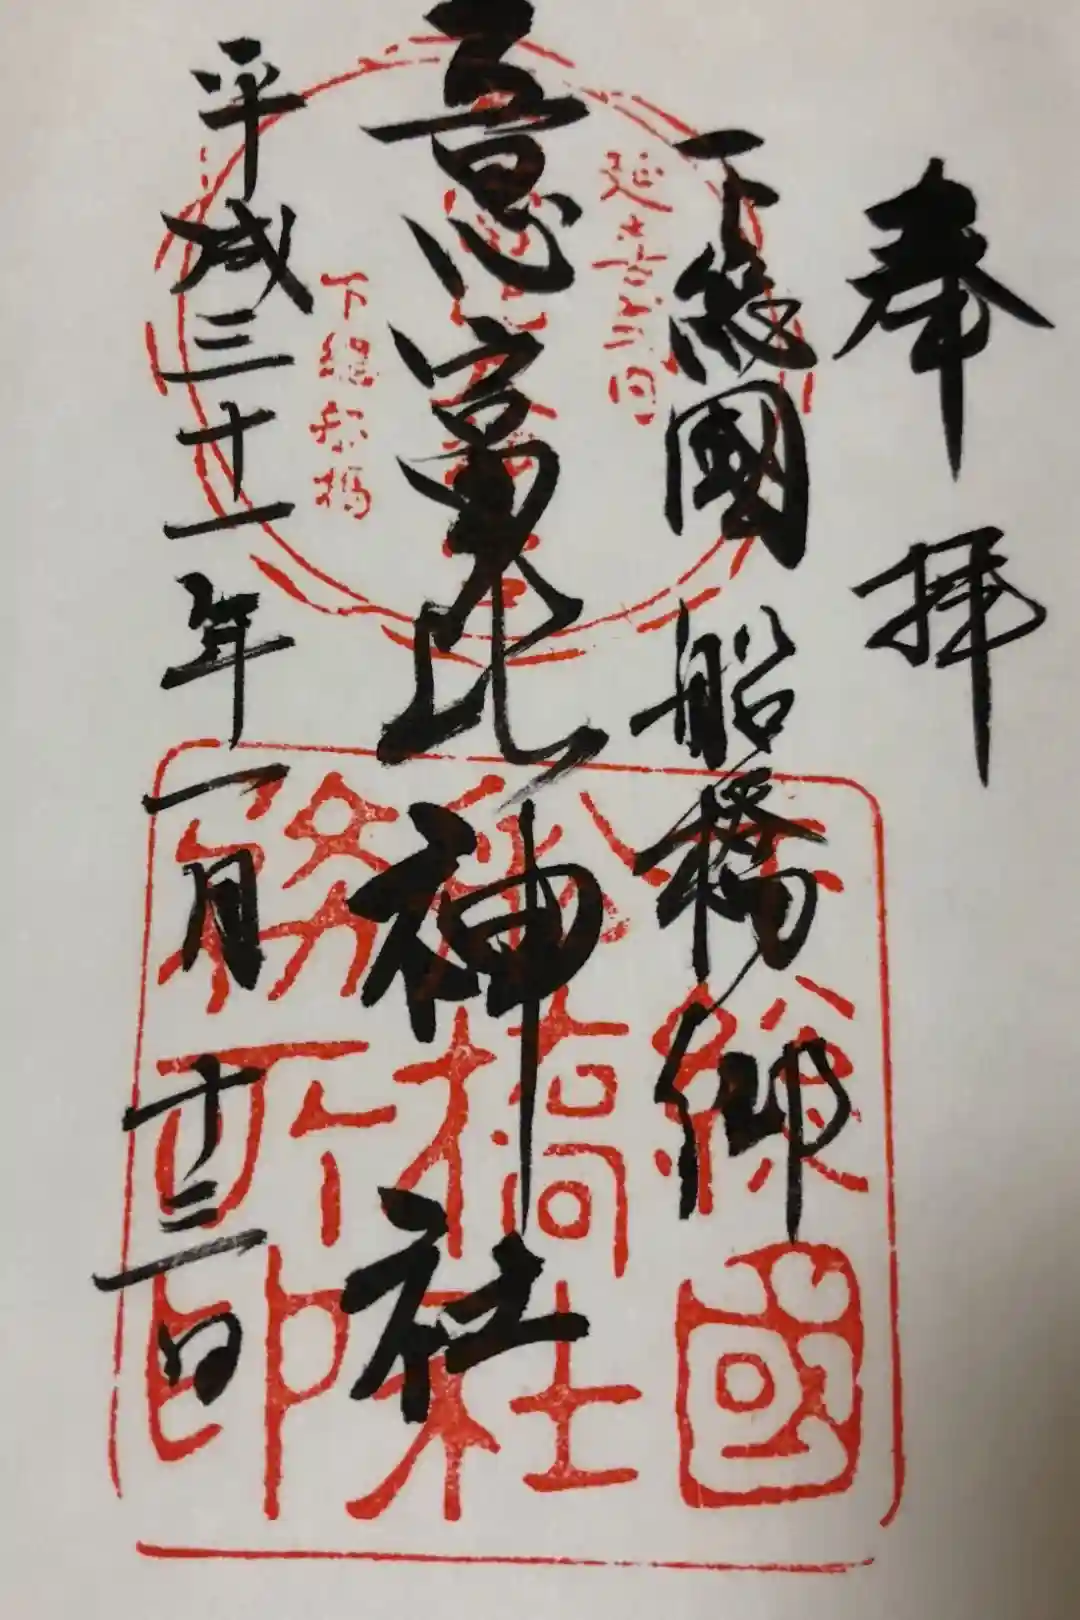 奉拝
下總國船橋郷
意富比神社
平成三十一年一月十三日
延喜式内
下總船橋
下總國
船橋社
務所印